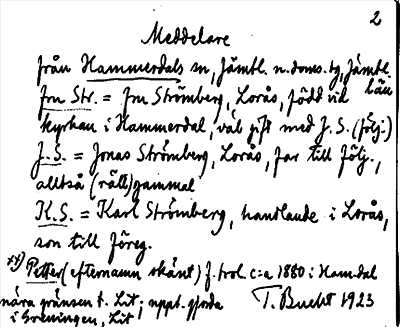 2
Meddelare
från Hammerdals sn, Jämtl. n. doms. tg, Jämtl. län
Fru Str. = Fru Strömberg, Lorås, född vid
kyrkan i Hammerdal, väl gift med J. S. (följ.)
J. S. = Jonas Strömberg, Lorås, far till följ.,
alltså (rätt) gammal
K. S. = Karl Strömberg, handlande i Lorås,
son till föreg.
Petter (efternamn okänt) f. trol. c:a 1880 i Hamdal
nära gränsen t. Lit; uppt. gjorda
i Greningen, Lit
T. Bucht 1923